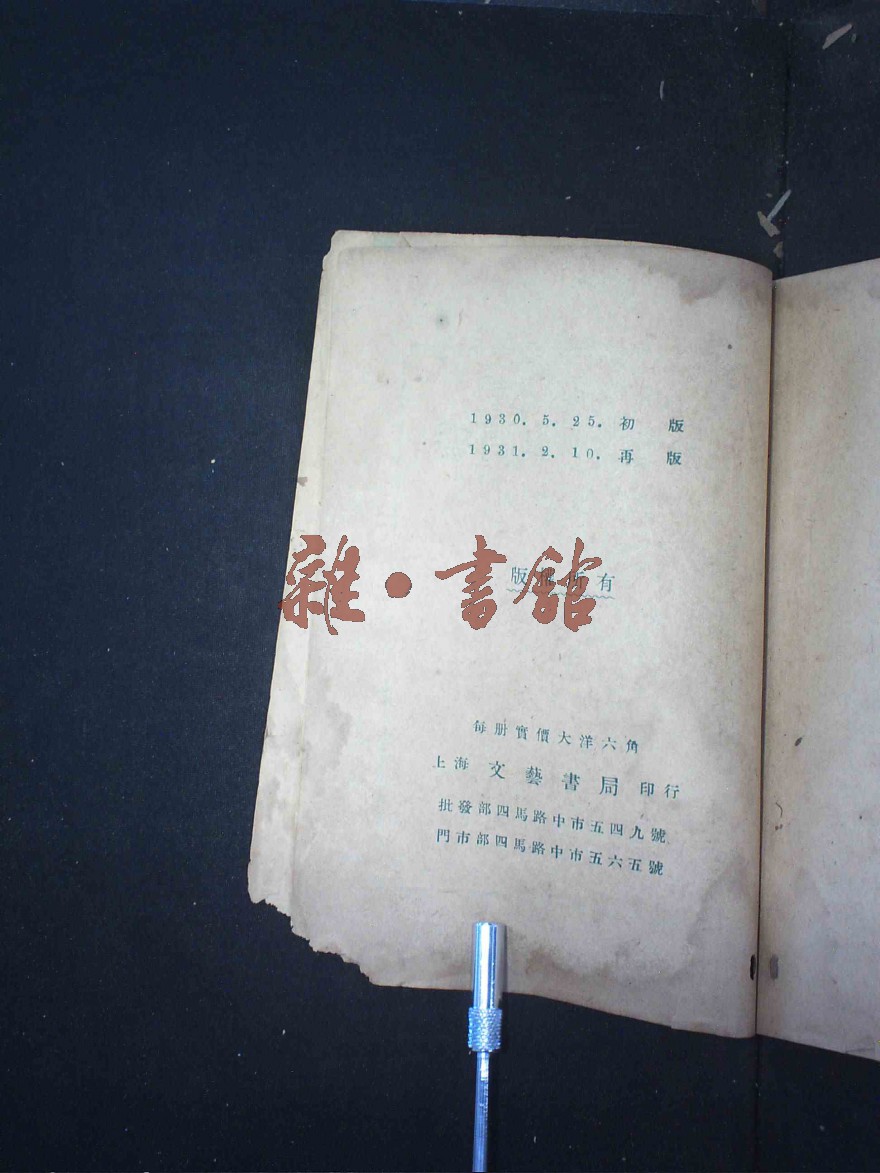 1930. 5. 25. 初版
1931. 2. 10. 再版
版權所有
雜·書館
每册實價大洋六角
上海 文藝書局 印行
批發部四馬路中市五四九號
門市部四馬路中市五六五號